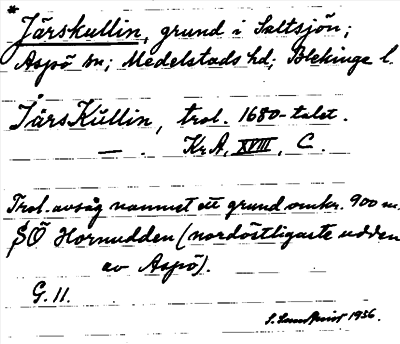 * Järskullin, grund i Saltsjön;
Aspö sn; Medelstads hd; Blekinge l.
JärsKullin, trol. 1680-talet.
— . Kr.A, XVIII, C.
Trol. avsåg namnet ett grund omkr. 900 m.
SÖ Hornudden (nordöstligaste udden
av Aspö).
G. 11.
S. 1936.